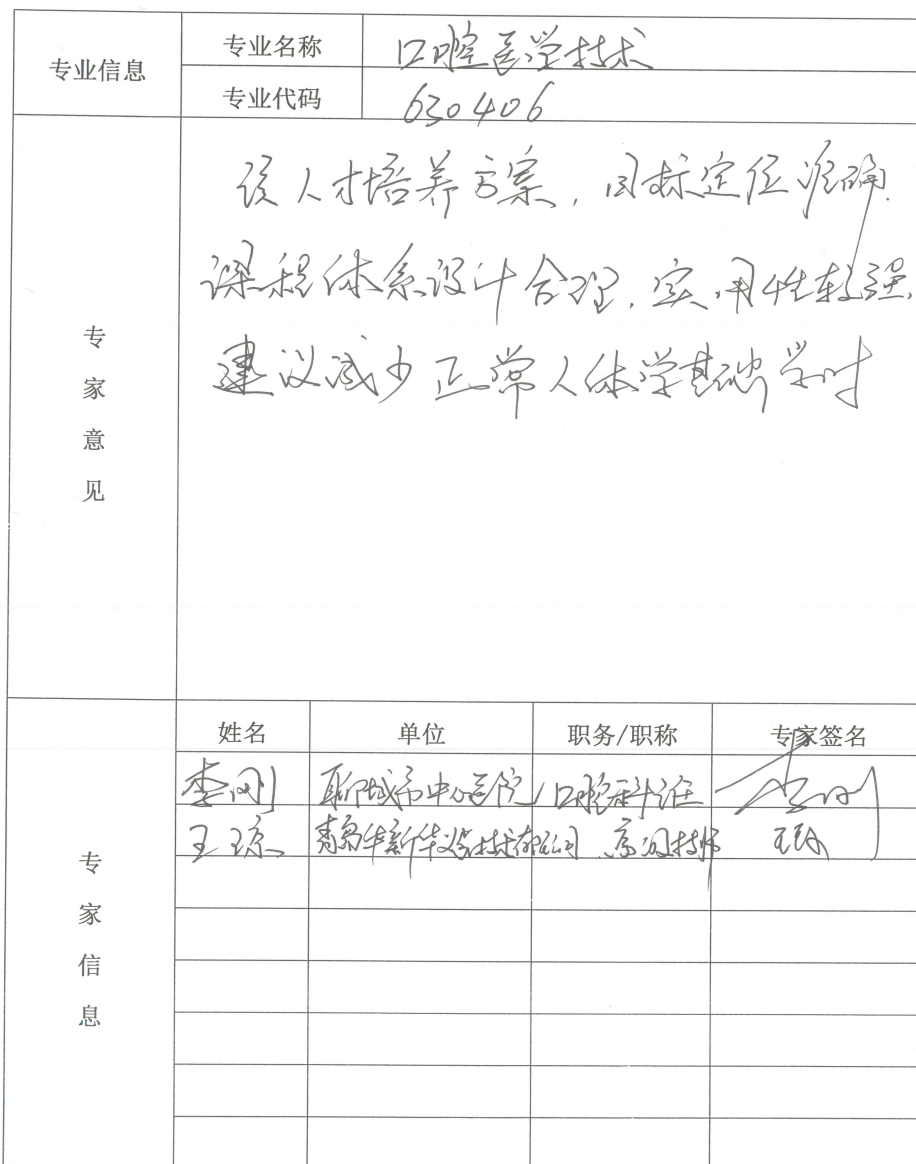 专业信息 专业名称 口腔医学技术
专业代码 630406
专家意见
该人才培养方案,目标定位准确.
课程体系设计合理.实用性较强.
建议减少正常人体学基础学时
专家信息
姓名 单位 职务/职称 专家签名
李刚 聊城市中医院 口腔科主任 李刚
王琼 青岛华新华义齿技术有限公司 高级技师 王琼